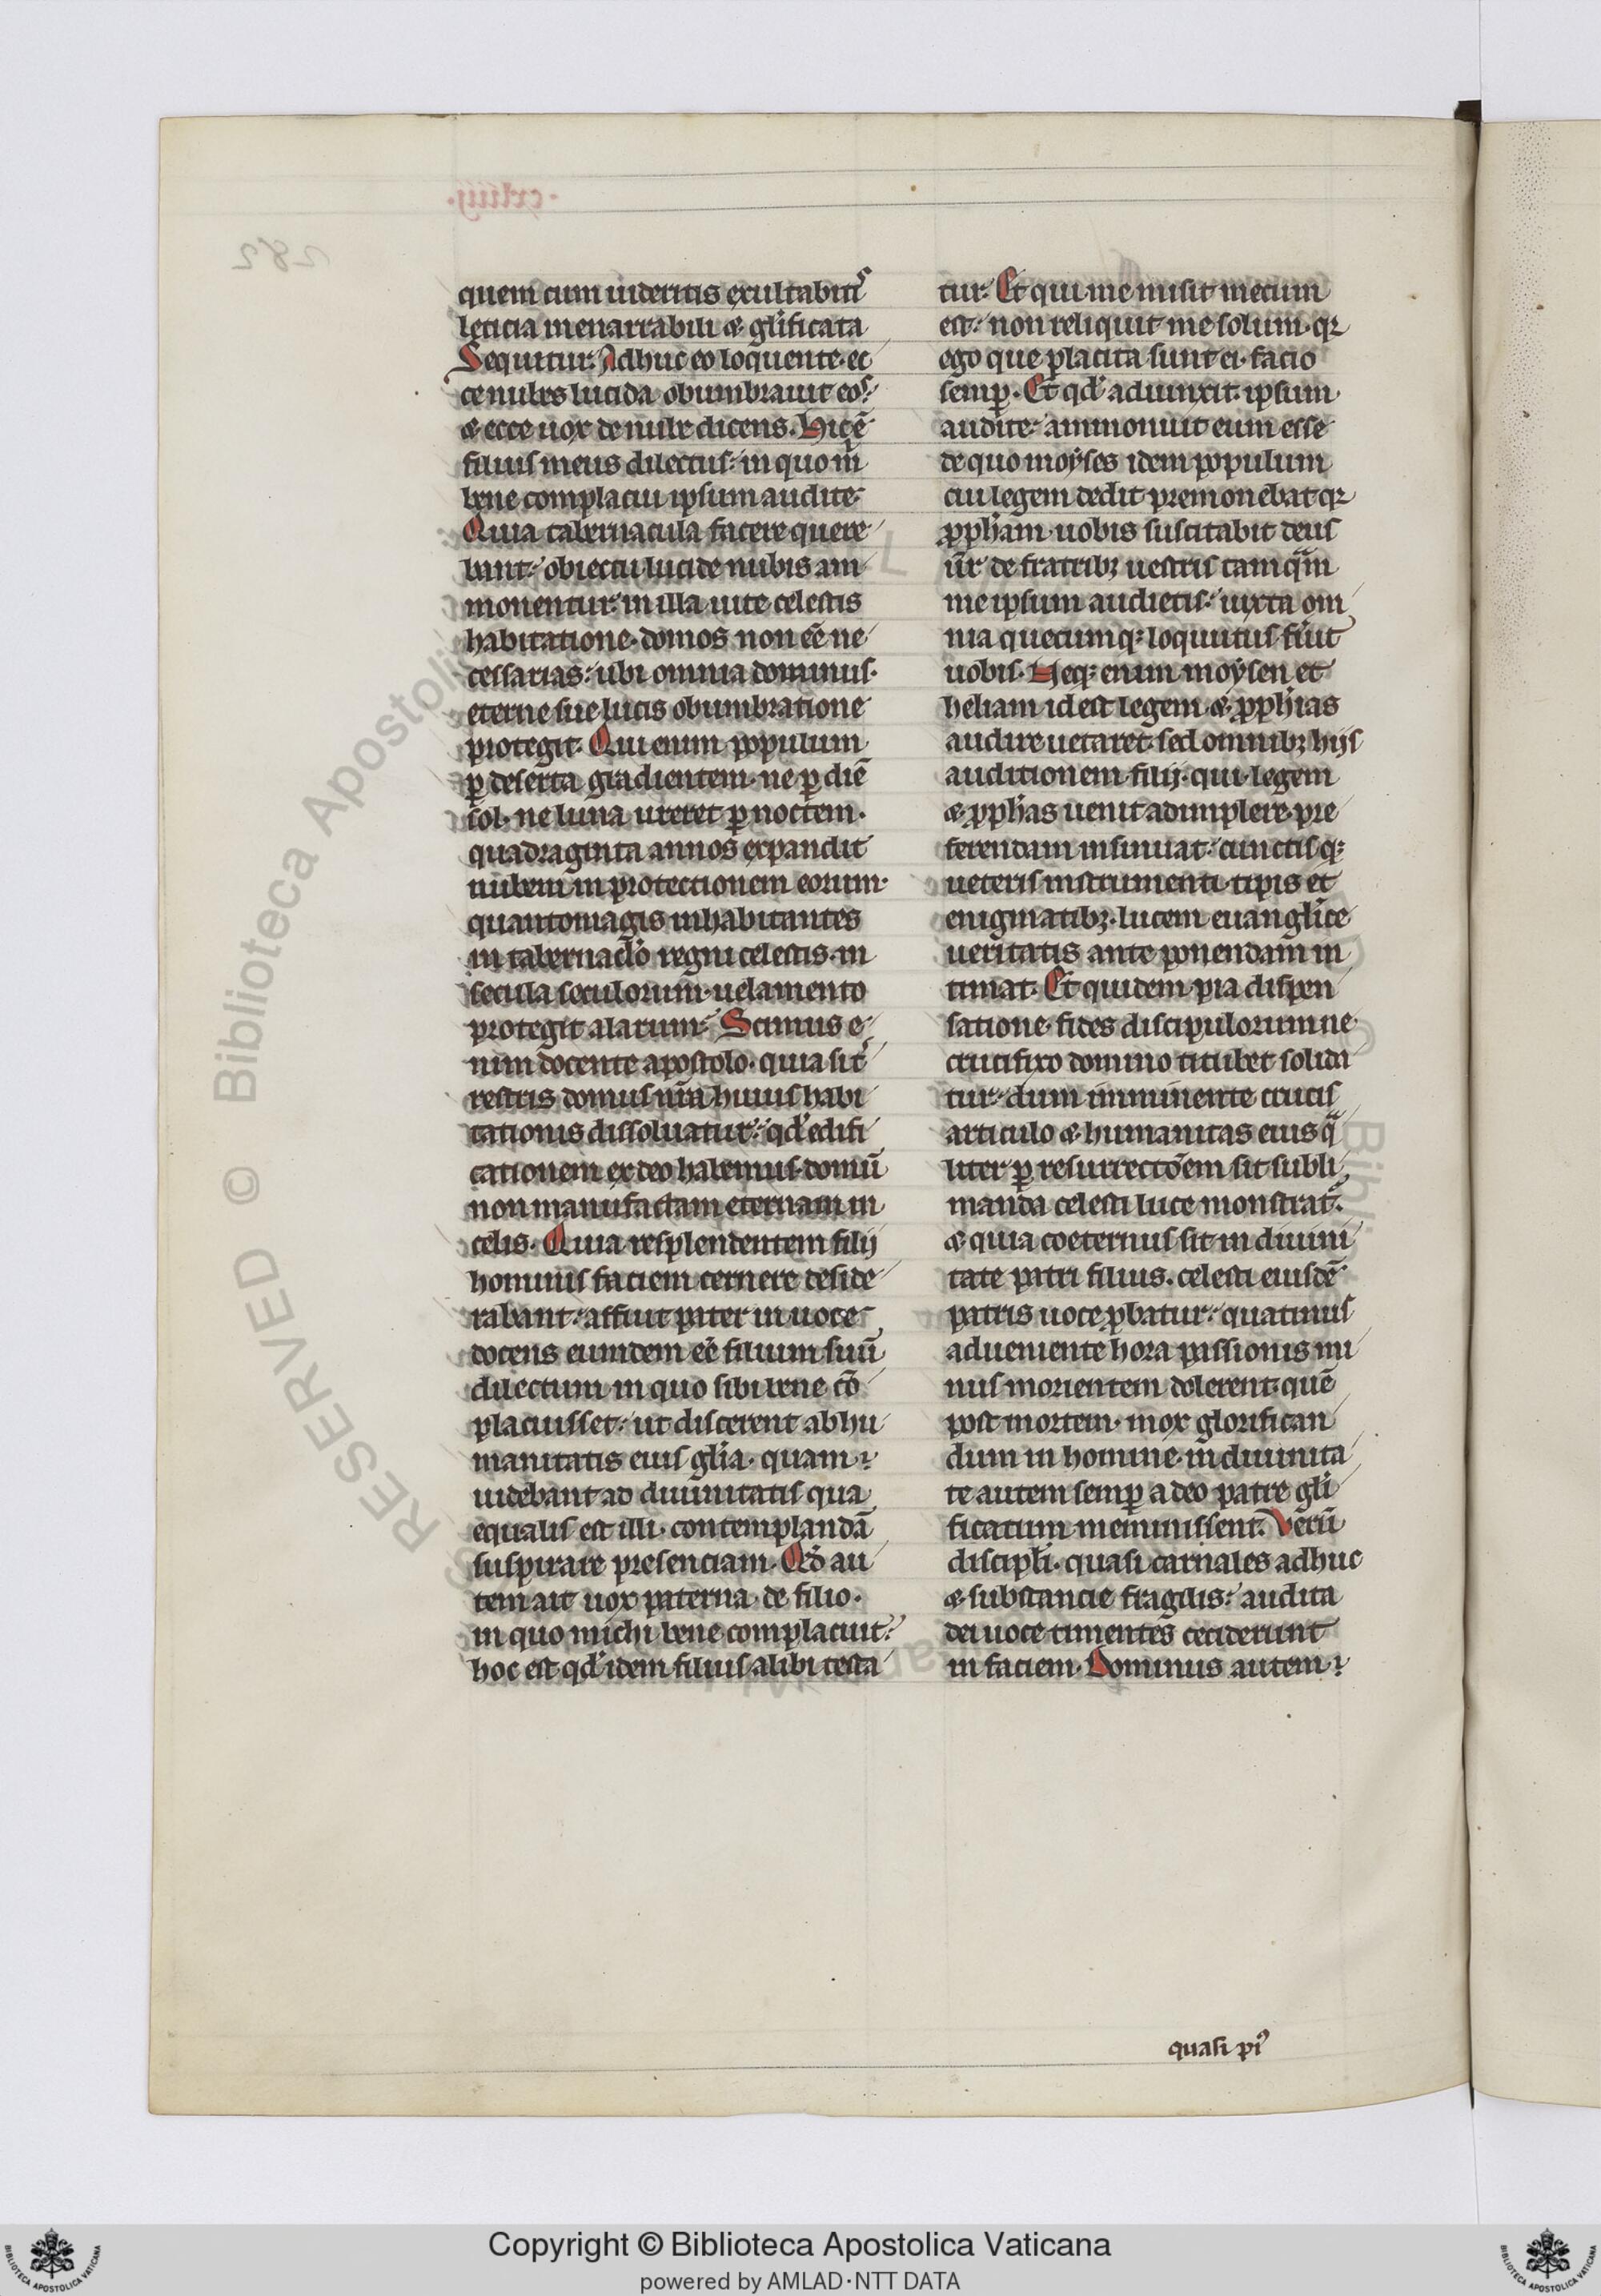 quem cum uideritis exultabitis
leticia inenarrabili & gl'ificata
Sequitur. Adhuc eo loquente. ec
ce nubes lucida obumbrauit eos.
& ecce uox de nube dicens. Hic ē
filius meus dilectus. in quo m̄
bene complacui ipsum audite.
Quia tabernacula facere quere
bant. obiectu lucide nubis am
monentur. in illa uite celestis
habitatione. domos non eē ne
cessarias. ubi omnia dominus.
eterne sue lucis obumbratione
protegit. Qui enim populum
ꝑ deserta gradientem. ne ꝑ diē
sol. ne luna ureret ꝑ noctem.
quadraginta annos expandit
nubem in protectionem eorum.
quantomagis inhabitantes
in tabernaclo regni celestis. in
secula seculorum. uelamento
protegit alarum. Scimus e
nim docente apostolo. quia si t
restris domus nr̄a huius habi
tationis dissoluatur. qd' edifi
cationem ex deo habemus. domū
non manufactam eternam in
celis. Quia resplendentem filij
hominis faciem cernere deside
rabant. affuit pater in uoce
docens eumdem eē filium suū
dilectum in quo sibi bene cō
placuisset. ut discerent ab hu
manitatis eius gl'ia. quam
uidebant ad diuinitatis qua
equalis est illi. contemplandā
suspirare presenciam. Qd' au
tem ait uox paterna. de filio.
in quo michi bene complacuit.
hoc est qd' idem filius alibi testa
tur. Et qui me misit mecum
est. non reliquit me solum. qꝛ
ego que placita sunt ei. facio
semꝑ. Et qd' adiunxit. ipsum
audite. ammonuit eum esse
de quo moyses idem populum
cui legem dedit premonebat qꝛ
ꝓph'am uobis suscitabit deus
ūr de fratribꝫ uestris tamq̄m
me ipsum audietis. iuxta om
nia quecumqꝫ loquutus fuit
uobis. Neqꝫ enim moysen et
heliam id est legem & ꝓph'ias
audire uetaret. sed omnibꝫ hijs
auditionem filij. qui legem
& ꝓph'as uenit adimplere. pre
ferendam insinuat. cunctis qꝫ
ueteris instrumenti tipis et
enigmatibꝫ. lucem euangl'ice
ueritatis ante ponendam in
timat. Et quidem pia dispen
satione. fides discipulorum ne
crucifixo domino titubet solida
tur. dum imminente crucis
articulo & humanitas eius q̄
liter ꝑ resurrectōem sit subli
manda celesti luce monstrat̄.
& quia coeternus sit in diuini
tate patri filius. celesti eiusdē
patris uoce ꝓbatur. quatinus
adueniente hora passionis mi
nus morientem dolerent. quē
post mortem. mox glorifican
dum in homine. in diuinita
te autem semꝑ a deo patre gl'i
ficatum meminissent. Verū
discipl'i. quasi carnales adhuc
& substancie fragilis. audita
dei uoce timentes ceciderunt
in faciem. Dominus autem
quasi pi'
Copyright © Biblioteca Apostolica Vaticana
powered by AMLAD·NTT DATA